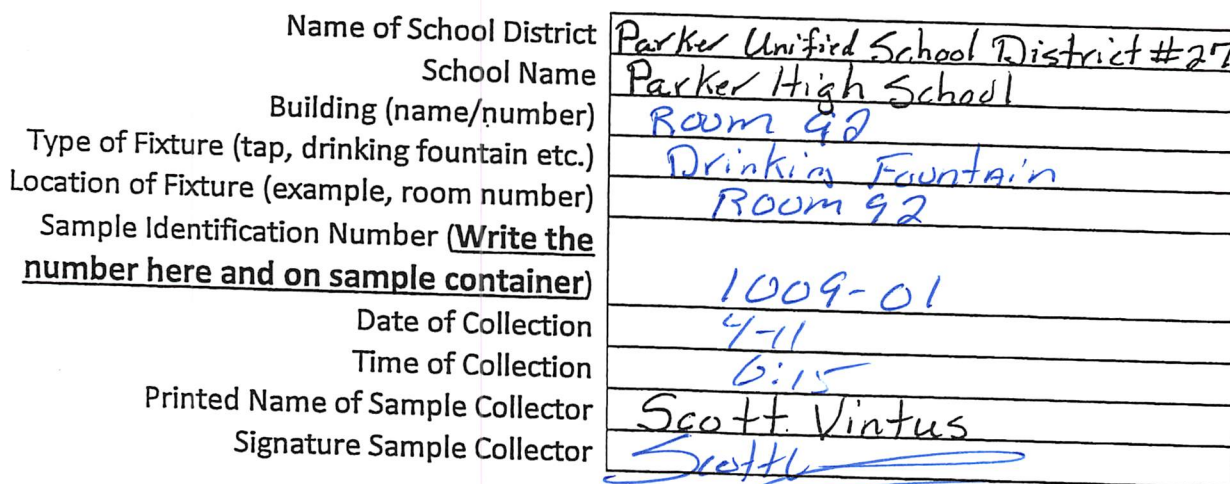 Name of School District Parker Unified School District #27
School Name Parker High School
Building (name/number) Room 92
Type of Fixture (tap, drinking fountain etc.) Drinking Fountain
Location of Fixture (example, room number) Room 92
Sample Identification Number (Write the
number here and on sample container) 1009-01
Date of Collection 4-11
Time of Collection 6:15
Printed Name of Sample Collector Scott Vintus
Signature Sample Collector